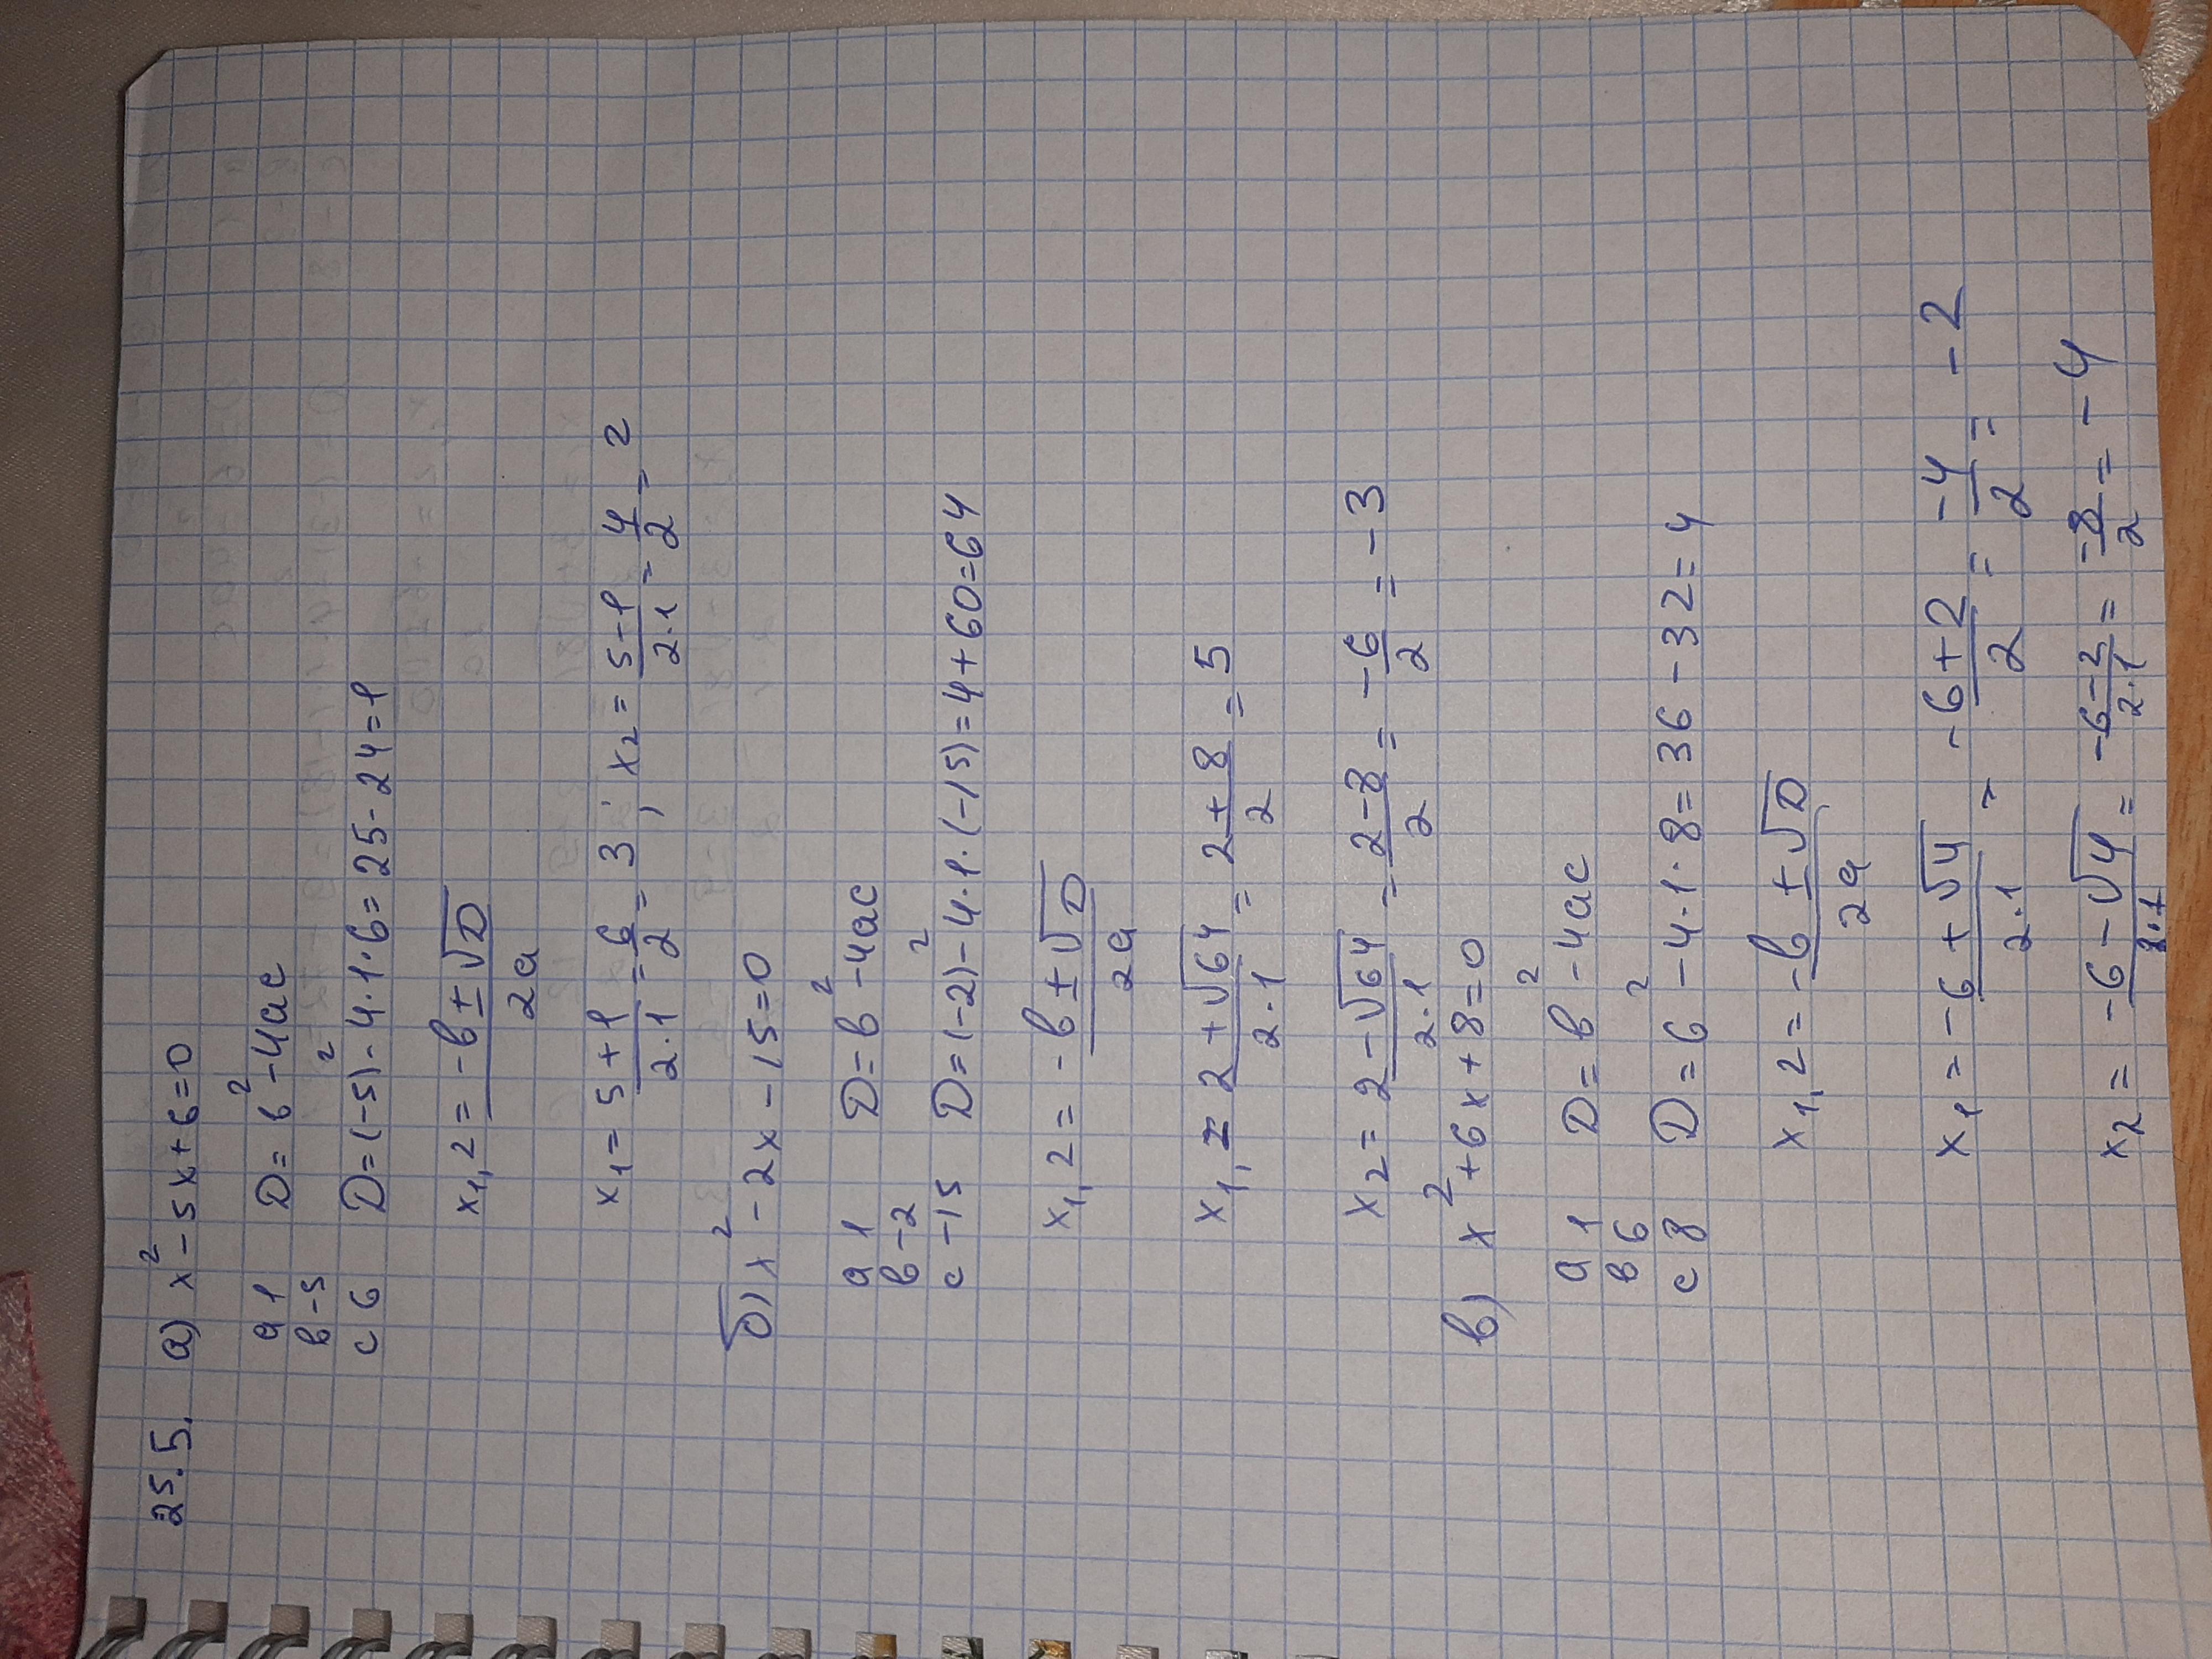 25.5. а) x² - 5x + 6 = 0
a 1 D = b² - 4ac
b -5
c 6 D = (-5)² - 4·1·6 = 25 - 24 = 1
x₁,₂ = (-b ± √D)/2a
x₁ = (5+1)/(2·1) = 6/2 = 3; x₂ = (5-1)/(2·1) = 4/2 = 2
б) x² - 2x - 15 = 0
a 1 D = b² - 4ac
b -2
c -15 D = (-2)² - 4·1·(-15) = 4 + 60 = 64
x₁,₂ = (-b ± √D)/2a
x₁, = (2 + √64)/(2·1) = (2+8)/2 = 5
x₂ = (2 - √64)/(2·1) = (2-8)/2 = -6/2 = -3
в) x² + 6x + 8 = 0
a 1 D = b² - 4ac
b 6
c 8 D = 6² - 4·1·8 = 36 - 32 = 4
x₁,₂ = (-b ± √D)/2a
x₁ = (-6 + √4)/(2·1) = (-6+2)/2 = -4/2 = -2
x₂ = (-6 - √4)/(2·1) = (-6-2)/(2·1) = -8/2 = -4